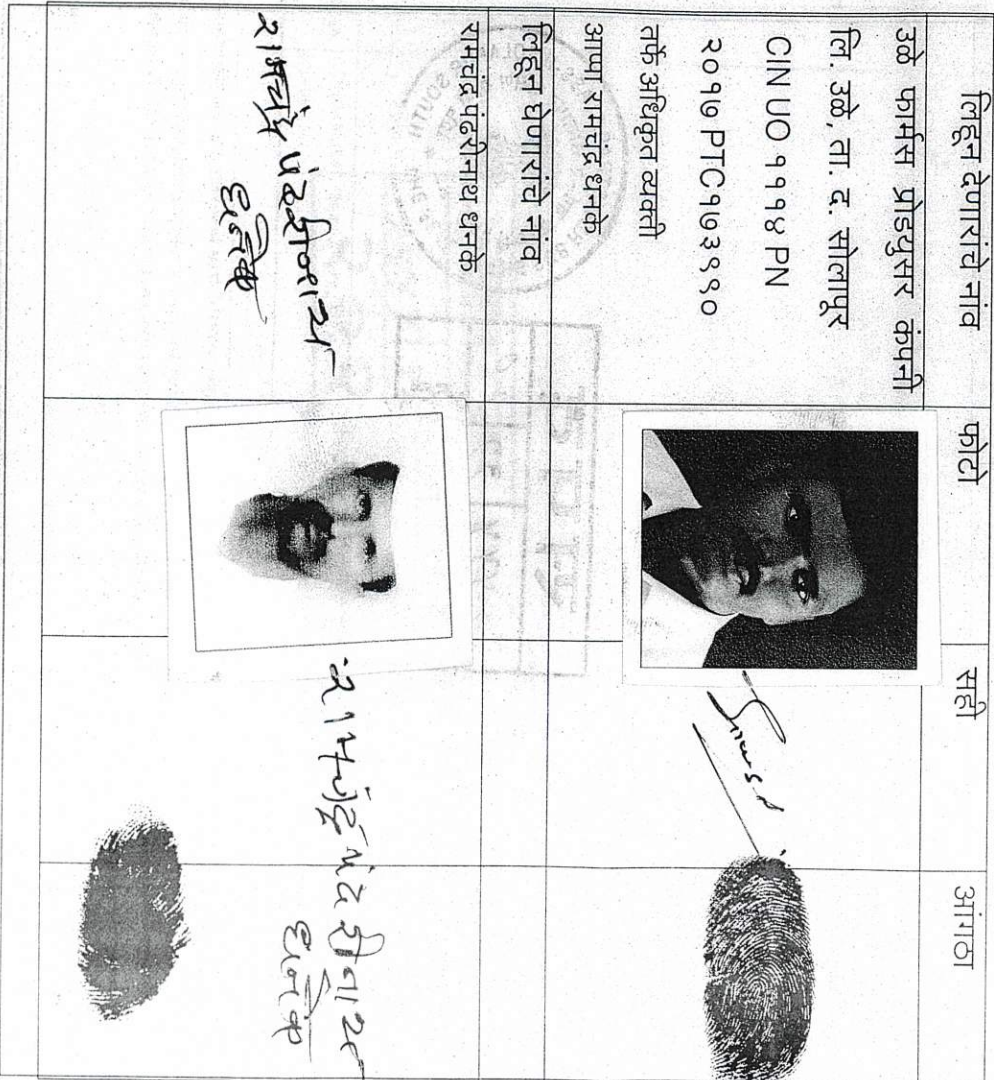 लिहून देणारांचे नांव
फोटो
सही
आंगठा
उळे फार्मस प्रोडयुसर कंपनी
लि. उळे, ता. द. सोलापूर
CIN UO १११४ PN
२०१७ PTC१७३९९०
तर्फे अधिकृत व्यक्ती
आप्पा रामचंद्र धनके
लिहून घेणारांचे नांव
रामचंद्र पंढरीनाथ धनके
रामचंद्र पंढरीनाथ
धनके
रामचंद्र पंढरीनाथ
धनके